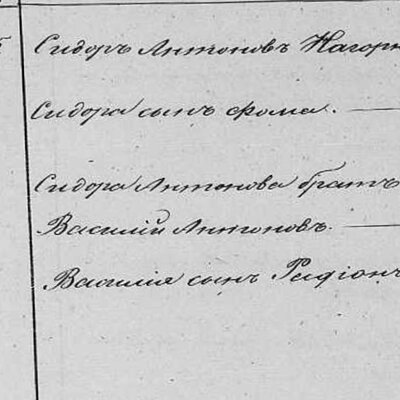 Сидоръ Антоновъ Нагорн
Сидора сынъ Фома.
Сидора Антонова братъ
Василій Антоновъ.
Василія сынъ